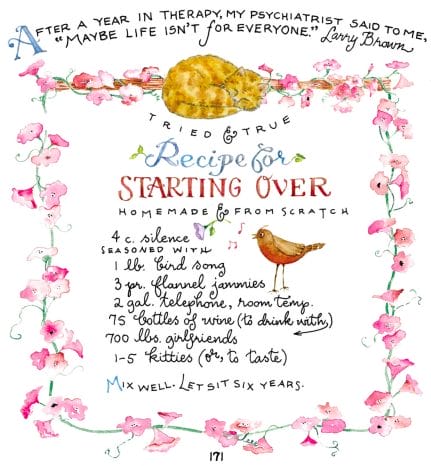 AFTER A YEAR IN THERAPY, MY PSYCHIATRIST SAID TO ME,
"MAYBE LIFE ISN'T for EVERYONE." Larry Brown
TRIED & TRUE
Recipe for
STARTING OVER
HOMEMADE & FROM SCRATCH
4 c. silence
SEASONED WITH
1 lb. bird song
3 pr. flannel jammies
2 gal. telephone, room temp.
75 bottles of wine (to drink with)
700 lbs. girlfriends
1-5 kitties (or, to taste)
MIX WELL. LET SIT SIX YEARS.
171